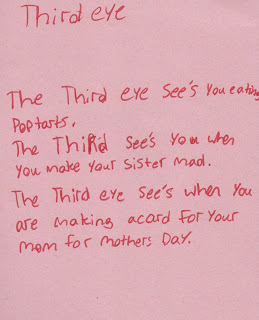 Third eye
The Third eye see's you eating
Poptarts.
The Third see's you when
you make your sister mad.
The Third eye see's when you
are making acard for your
mom for mothers Day.